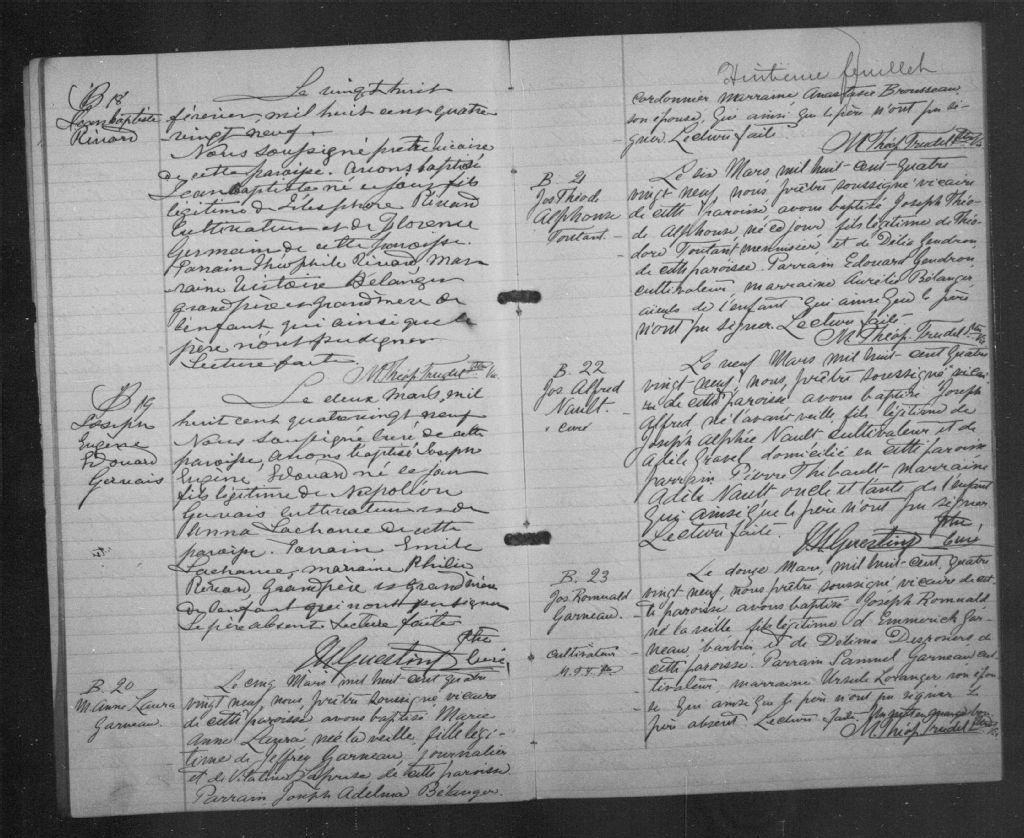 B 18
Jean baptiste
Rivard
Le vingt huit
février, mil huit cent quatre
vingt neuf.
Nous soussigné prêtre vicaire
de cette paroisse. avons baptisé
Jean baptiste né ce jour fils
légitime de Télesphore Rivard
Cultivateur et de Florence
Germain de cette paroisse.
Parrain Théophile Rivard Mar
raine Victoire Bélanger
grand père et grand mère de
l'enfant qui ainsi que le
père n'ont pu signer
Lecture faite
M. Théop. Trudel Ptre Vic.
B 19
Joseph
Eugène
Edouard
Gervais
Le deux mars, mil
huit cent quatre vingt neuf
Nous soussigné curé de cette
paroisse, avons baptisé Joseph
Eugène, Edouard né ce jour
fils légitime de Napoléon
Gervais cultivateur et de
Anna Lachance de cette
paroisse. Parrain Emile
Lachance, marraine
Rivard Grand père et Grand mère
de l'enfant qui n'ont pu signer
Le père absent Lecture faite
Ptre
Curé
B. 20
M. Anne Laura
Garneau
Le cinq Mars mil huit cent quatre
vingt neuf, nous, prêtre soussigné vicaire
de cette paroisse avons baptisé Marie
Anne Laura née la veille, fille légi-
time de Jeffrey Garneau, journalier
et de Vitaline Laprise de cette paroisse
Parrain Joseph Adelma Bélanger
Huitième feuillet
cordonnier marraine Anastasie Brousseau
son épouse, Qui ainsi que le père n'ont pu si-
gner Lecture faite
M. Théop. Trudel Ptre Vic.
B. 21
Jos Théode
Alphonse
Toutant
Le six Mars mil huit-cent-quatre
vingt neuf, nous prêtre soussigné vicaire
de cette paroisse, avons baptisé Joseph Théo-
de Alphonse né ce jour, fils légitime de Théo-
dore Toutant menuisier et de Délia Gendron,
de cette paroisse. Parrain Edouard Gendron,
cultivateur, marraine Aurélie Bélanger,
aïeuls de l'enfant Qui ainsi que le père
n'ont pu signer. Lecture faite
M. Théop. Trudel Ptre Vic.
B. 22
Jos. Alfred
Nault.
curé
Le neuf Mars mil huit-cent quatre
vingt-neuf, nous, prêtre soussigné
de cette paroisse avons baptisé Joseph
Alfred, né l'avant veille, fils légitime de
Joseph Alphée Nault, cultivateur et de
Adèle Gravel domicilié en cette paroisse
parrain Pierre Thibault marraine
Adèle Nault oncle et tante de l'enfant
Qui ainsi que le père n'ont pu signer
Lecture faite.
Ptre
Curé
B. 23
Jos. Romuald
Garneau.
cultivateur
Le douze Mars, mil huit-cent, quatre
vingt neuf, nous prêtre soussigné vicaire de cet-
te paroisse avons baptisé Joseph Romuald
né la veille fils légitime d'Emmerick Gar-
neau, barbier et de Délima Desrosiers de
cette paroisse. Parrain Samuel Garneau cul-
tivateur, marraine Ursule Loranger son épou-
se Qui ainsi que le père n'ont pu signer le
père absent Lecture faite
M. Théop. Trudel Ptre Vic.